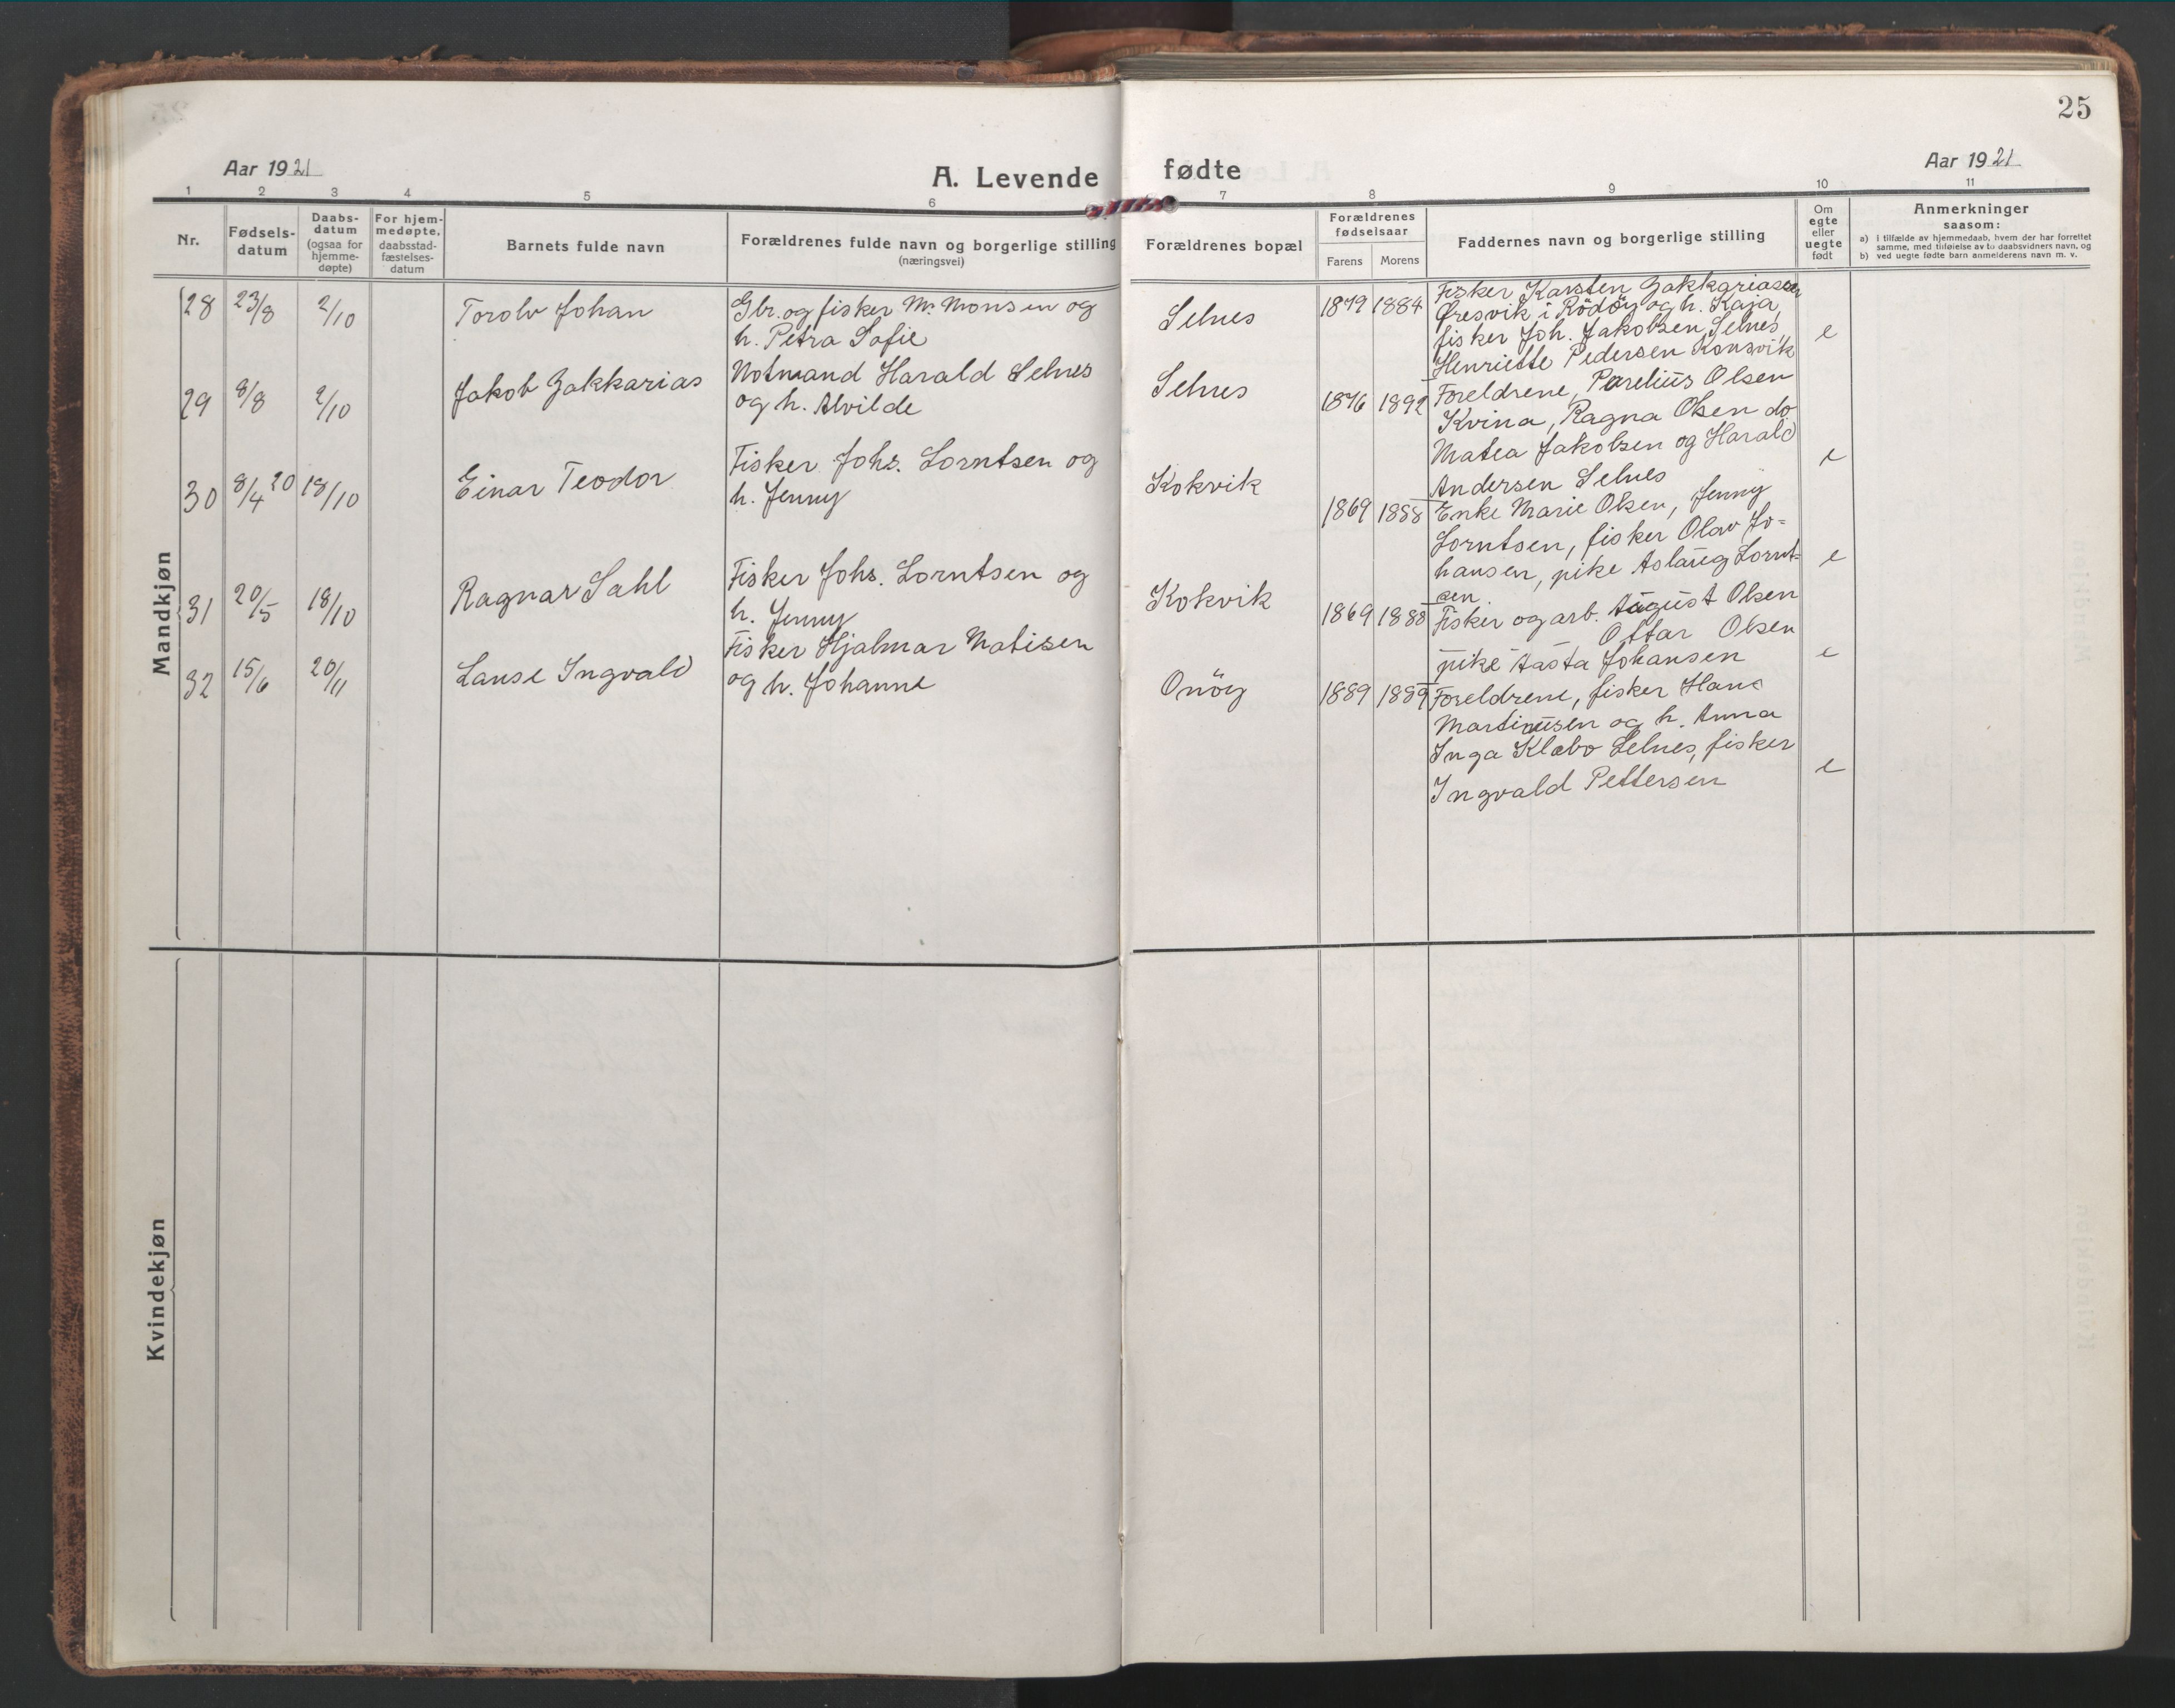 25
Aar 1921
A. Levende fødte
Aar 1921
1 2 3 4 5 6 7 8 9 10 11
Nr.
Fødsels-
datum
Daabs-
datum
(ogsaa for
hjemme-
døpte)
For hjem-
medøpte,
daabsstad-
fæstelses-
datum
Barnets fulde navn
Forældrenes fulde navn og borgerlige stilling
(næringsvei)
Forældrenes bopæl
Forældrenes
fødselsaar
Farens Morens
Faddernes navn og borgerlige stilling
Om
egte
eller
uegte
født
Anmerkninger
saasom:
a) i tilfælde av hjemmedaab, hvem der har forrettet
samme, med tilføielse av to daabsvidners navn, og
b) ved uegte fødte barn anmelderens navn m. v.
Mandkjøn
28 23/8 2/10 Torolv Johan
Gbr. og fisker M. Monsen og
h. Petra Sofie
Selnes 1879 1884
Fisker Karsten Zakkariassen
Øresvik i Rödöy og h. Kaja,
fisker Joh. Jakobsen Selnes,
Henriette Pedersen Konsvik
e
29 8/8 2/10 Jakob Zakkarias
Notmand Harald Selnes
og h. Alvilde
Selnes 1876 1892
Foreldrene, Parelius Olsen
Kvina, Ragna Olsen do
Matea Jakobsen og Harald
Andersen Selnes
e
30 8/4 20 18/10 Einar Teodor
Fisker Johs. Lorntsen og
h. Jenny
Kokvik 1869 1888
Enke Marie Olsen, Jenny
Lorntsen, fisker Olav Jo-
hansen, pike Aslaug Lornt-
sen
e
31 20/5 18/10 Ragnar Sahl
Fisker Johs. Lorntsen og
h. Jenny
Kokvik 1869 1888
Fisker og arb. August Olsen
Ottar Olsen
pike Aasta Johansen
e
32 15/6 20/11 Lause Ingvald
Fisker Hjalmar Matisen
og h. Johanne
Onöy 1889 1889
Foreldrene, fisker Hans
Martinusen og h. Anna
Inga Klæbo Selnes, fisker
Ingvald Pettersen
e
Kvindekjøn